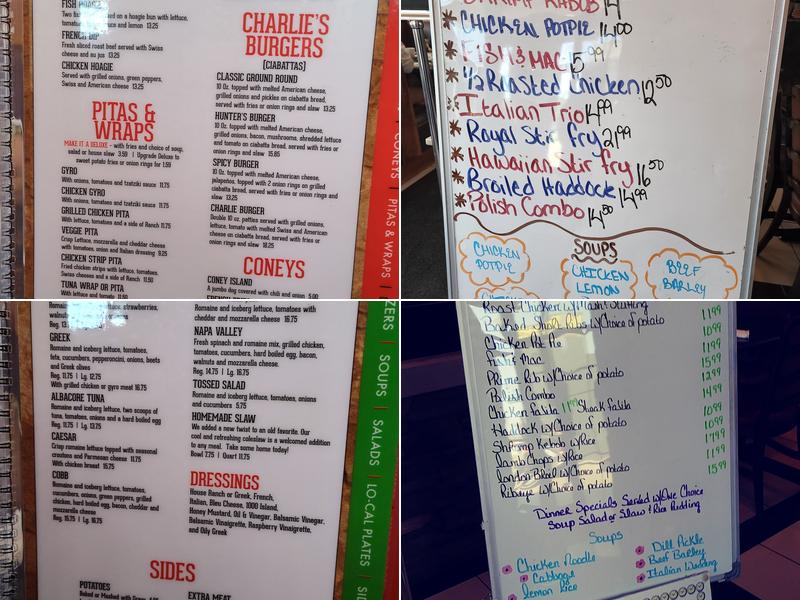 FISH HOAGIE
on a hoagie bun with lettuce,
and lemon 13.25
FRENCH DIP
Fresh sliced roast beef served with Swiss
cheese and au jus 13.25
CHICKEN HOAGIE
Served with grilled onions, green peppers,
Swiss and American cheese 13.25
PITAS &
WRAPS
MAKE IT A DELUXE - with fries and choice of soup,
salad or house slaw 3.50 | Upgrade Deluxe to
sweet potato fries or onion rings for 1.59
GYRO
With onions, tomatoes and tzatziki sauce 11.75
CHICKEN GYRO
With onions, tomatoes and tzatziki sauce 11.75
GRILLED CHICKEN PITA
With lettuce, tomatoes and a side of Ranch 11.75
VEGGIE PITA
Crisp Lettuce, mozzarella and cheddar cheese
with tomatoes, onion and Italian dressing 9.25
CHICKEN STRIP PITA
Fried chicken strips with lettuce, tomatoes,
Swiss cheese and a side of Ranch 11.50
TUNA WRAP OR PITA
With lettuce and tomato 11.50
CHARLIE'S
BURGERS
(CIABATTAS)
CLASSIC GROUND ROUND
10 Oz. topped with melted American cheese,
grilled onions and pickles on ciabatta bread,
served with fries or onion rings and slaw 13.25
HUNTER'S BURGER
10 Oz. topped with melted American cheese,
grilled onions, bacon, mushrooms, shredded lettuce
and tomato on ciabatta bread, served with fries or
onion rings and slaw 15.65
SPICY BURGER
10 Oz. topped with melted American cheese,
jalapeños, topped with 2 onion rings on grilled
ciabatta bread, served with fries or onion rings and
slaw 13.25
CHARLIE BURGER
Double 10 oz. patties served with grilled onions,
lettuce, tomato with melted Swiss and American
cheese on ciabatta bread, served with fries or
onion rings and slaw 18.25
CONEYS
CONEY ISLAND
A jumbo dog covered with chili and onion 5.00
CONEYS | PITAS & WRAPS
SHRIMP KABOB 14
* CHICKEN POTPIE 14.00
* FISH & MAC 15.99
* 1/2 Roasted Chicken 12.50
* Italian Trio 14.99
* Royal Stir fry 21.99
* Hawaiian Stir fry 16.50
* Broiled Haddock 14.99
* Polish Combo 14.50
SOUPS
CHICKEN
POTPIE
CHICKEN
LEMON
BEEF
BARLEY
Romaine and iceberg lettuce, strawberries,
GREEK
Romaine and iceberg lettuce, tomatoes,
feta, cucumbers, pepperoncini, onions, beets
and Greek olives
Reg. 11.75 | Lg. 12.75
With grilled chicken or gyro meat 16.75
ALBACORE TUNA
Romaine and iceberg lettuce, two scoops of
tuna, tomatoes, onions and a hard boiled egg
Reg. 11.75 | Lg. 13.75
CAESAR
Crisp romaine lettuce topped with seasonal
croutons and Parmesan cheese 11.75
With chicken breast 15.75
COBB
Romaine and iceberg lettuce, tomatoes,
cucumbers, onions, green peppers, grilled
chicken, hard boiled egg, bacon, cheddar and
mozzarella cheese
Reg. 15.75 | Lg. 16.75
Romaine and iceberg lettuce, tomatoes with
cheddar and mozzarella cheese 16.75
NAPA VALLEY
Fresh spinach and romaine mix, grilled chicken,
tomatoes, cucumbers, hard boiled egg, bacon,
walnuts and mozzarella cheese.
Reg. 14.75 | Lg. 16.75
TOSSED SALAD
Romaine and iceberg lettuce, tomatoes, onions
and cucumbers 5.75
HOMEMADE SLAW
We added a new twist to an old favorite. Our
cool and refreshing coleslaw is a welcomed addition
to any meal. Take some home today!
Bowl 7.75 | Quart 11.75
DRESSINGS
House Ranch or Greek, French,
Italian, Bleu Cheese, 1000 Island,
Honey Mustard, Oil & Vinegar, Balsamic Vinegar,
Balsamic Vinaigrette, Raspberry Vinaigrette,
and Oily Greek
SIDES
POTATOES
EXTRA MEAT
ZERS | SOUPS | SALADS | LO-CAL PLATES |
Roast Chicken w/Mash & Stuffing
Baked Short Ribs w/Choice of potato 11.99
Chicken Pot Pie 10.99
Fish & Mac 11.99
Prime Rib w/Choice of potato 15.99
Polish Combo 12.99
Chicken fajita 11.99 Steak fajita 14.99
Haddock w/Choice of potato 10.99
Shrimp Kebob w/Rice 10.99
Lamb Chops w/Rice 17.99
London Broil w/Choice of potato 11.99
Ribeye w/Choice of potato 15.99
Dinner Specials Served w/One Choice
Soup Salad or Slaw & Rice Pudding
Soups
Chicken Noodle
Cabbage
Lemon Rice
Dill Pickle
Beef Barley
Italian Wedding